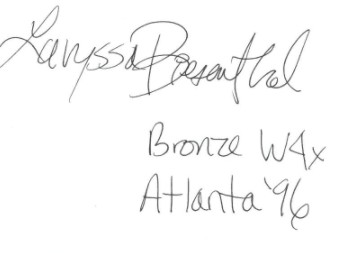 Laryssa Biesenthal
Bronze W4x
Atlanta '96